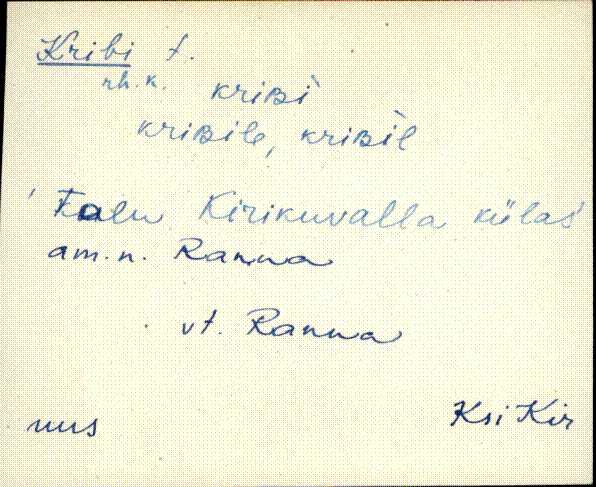 Kribi t.
rh.k. kriʙi
kriʙile, kriʙil
Talu Kirikuvalla külas
am.n. Ranna
vt. Ranna
uus KsiKir